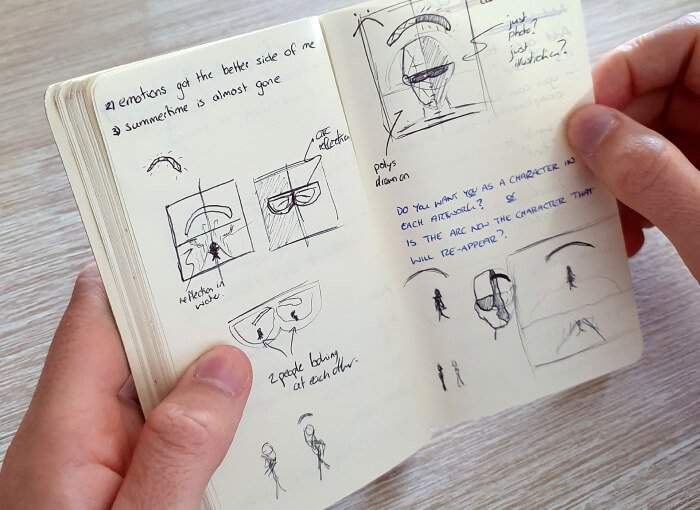 2) emotions got the better side of me
3) summertime is almost gone
ARC
reflection
reflection in
water.
2 people looking
at each other.
just
photo?
just
illustration?
polys
drawn on
DO YOU WANT YOU AS A CHARACTER IN
EACH ARTWORK? OR
IS THE ARC NOW THE CHARACTER THAT
WILL RE-APPEAR?